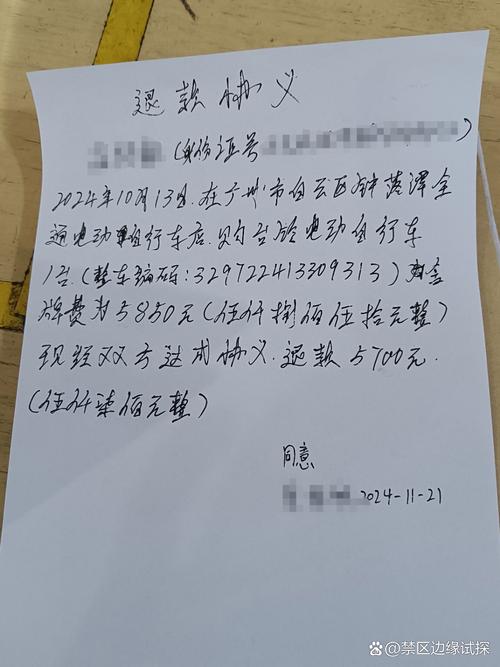 退款协议
(身份证号 )
2024年10月13日.在广州市白云区钟落潭全
通电动自行车店.购台铃电动自行车
1台.(整车编码:329722413309313)含
牌费为5850元(伍仟捌佰伍拾元整)
现经双方达成协议.退款5700元.
(伍仟柒佰元整)
同意
2024-11-21
@禁区边缘试探